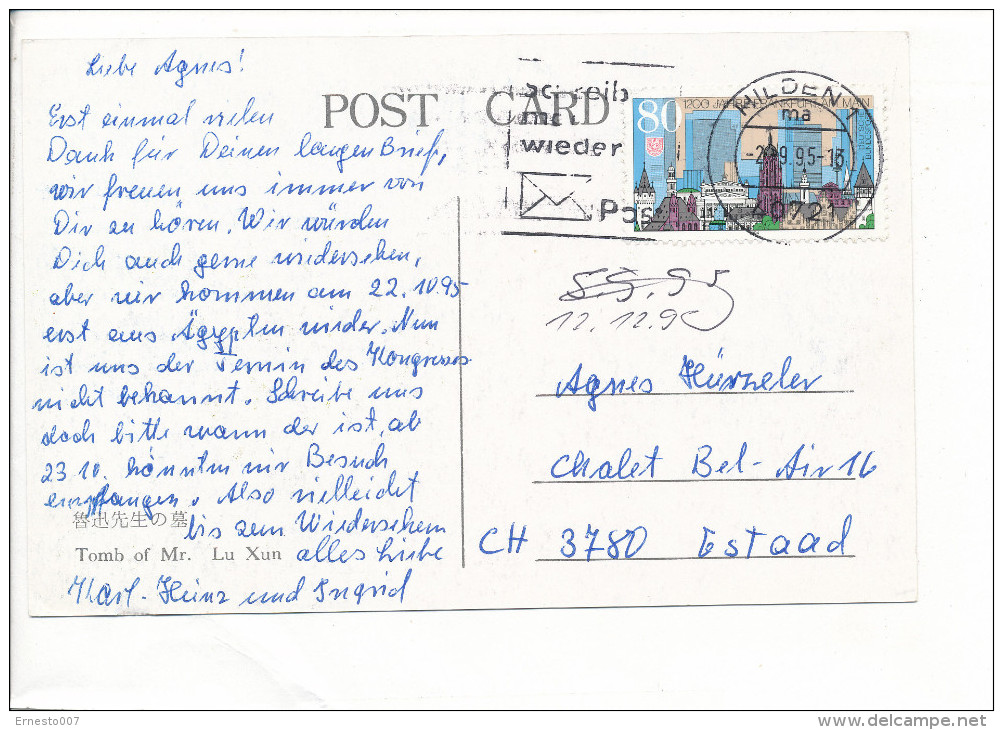 Liebe Agnes!
Erst einmal vielen
Dank für Deinen langen Brief,
wir freuen uns immer von
Dir zu hören. Wir würden
Dich auch gerne wiedersehen,
aber wir kommen am 22.10.95
erst aus Ägypten wieder. Nun
ist uns der Termin des Kongresses
nicht bekannt. Schreibe uns
doch bitte wann der ist, ab
23 10. könnten wir Besuch
empfangen. Also vielleicht
bis zum Wiedersehen
alles Liebe
Karl-Heinz und Ingrid
魯迅先生の墓
Tomb of Mr. Lu Xun
POST CARD
wieder
Pos
80
1200 JAHRE FRANKFURT AM MAIN
HILDEN 1
ma
9.95-
4072
8.9.95
12.12.9
Agnes Hürzeler
Chalet Bel-Air 16
CH 3780 Gstaad
Ernesto007
delcampe.net